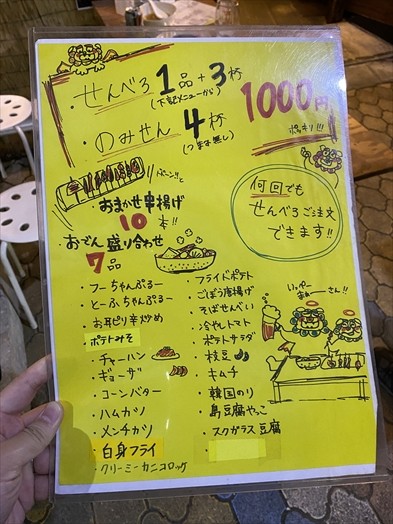 ・せんべろ 1品+3杯
(下記メニューから)
・のみせん 4杯
(つまみ無し)
1000円
ポッキリ!!!
ババーン!!と
・おまかせ串揚げ
10本!!
・おでん盛り合わせ
7品
何回でも
せんべろご注文
できます!!
・フーちゃんぷるー
・とーふちゃんぷるー
・お耳ピリ辛炒め
・ポテトみそ
・チャーハン
・ギョーザ
・コーンバター
・ハムカツ
・メンチカツ
・白身フライ
・クリーミーカニコロッケ
・フライドポテト
・ごぼう唐揚げ
・そばせんべい
・冷やしトマト
・ポテトサラダ
・枝豆
・キムチ
・韓国のり
・島豆腐やっこ
・スクガラス豆腐
いっぺー
まぁーさん!!